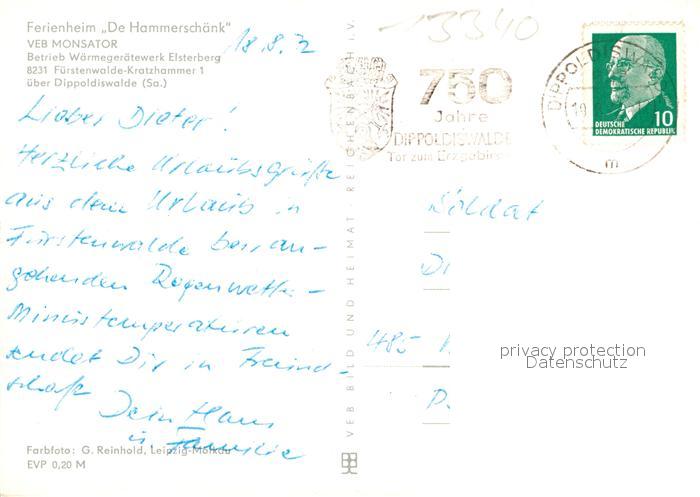 Ferienheim „De Hammerschänk"
VEB MONSATOR
Betrieb Wärmegerätewerk Elsterberg
8231 Fürstenwalde-Kratzhammer 1
über Dippoldiswalde (Sa.)
18.8.72
Lieber Dieter!
Herzliche Urlaubsgrüße
aus dem Urlaub in
Fürstenwalde bei an-
gehenden Regenwetter-
Minustemperaturen
sendet Dir in Freund-
schaft
Dein Hans
u. Familie
Farbfoto: G. Reinhold, Leipzig-Mölkau
EVP 0,20 M
VEB BILD UND HEIMAT · REICHENBACH i. V.
13340
750
Jahre
DIPPOLDISWALDE
Tor zum Erzgebirge
DIPPOLDISWALDE
19
m
10
DEUTSCHE
DEMOKRATISCHE REPUBLIK
Soldat
Di
485
privacy protection
Datenschutz